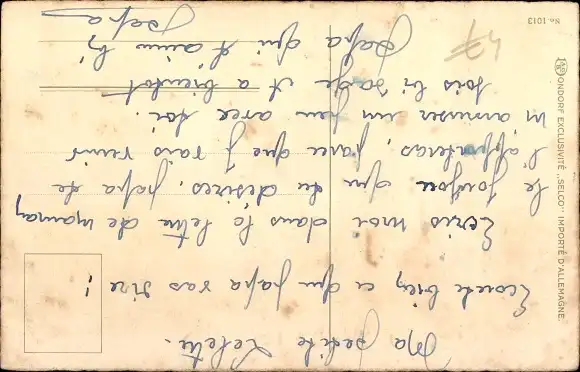 Ma petite
Ecoute bien ce que papa vas dire !
Ecris moi dans la lettre de maman
le joujou que tu desires, papa te
l'apporteras, parce que j vais venir
m'amuser un peu avec toi.
sois bi sage et a bientot
papa qui t'aime bi
papa
47
No. 1013
DONDORF EXCLUSIVITÉ „SELCO” IMPORTÉ D'ALLEMAGNE.